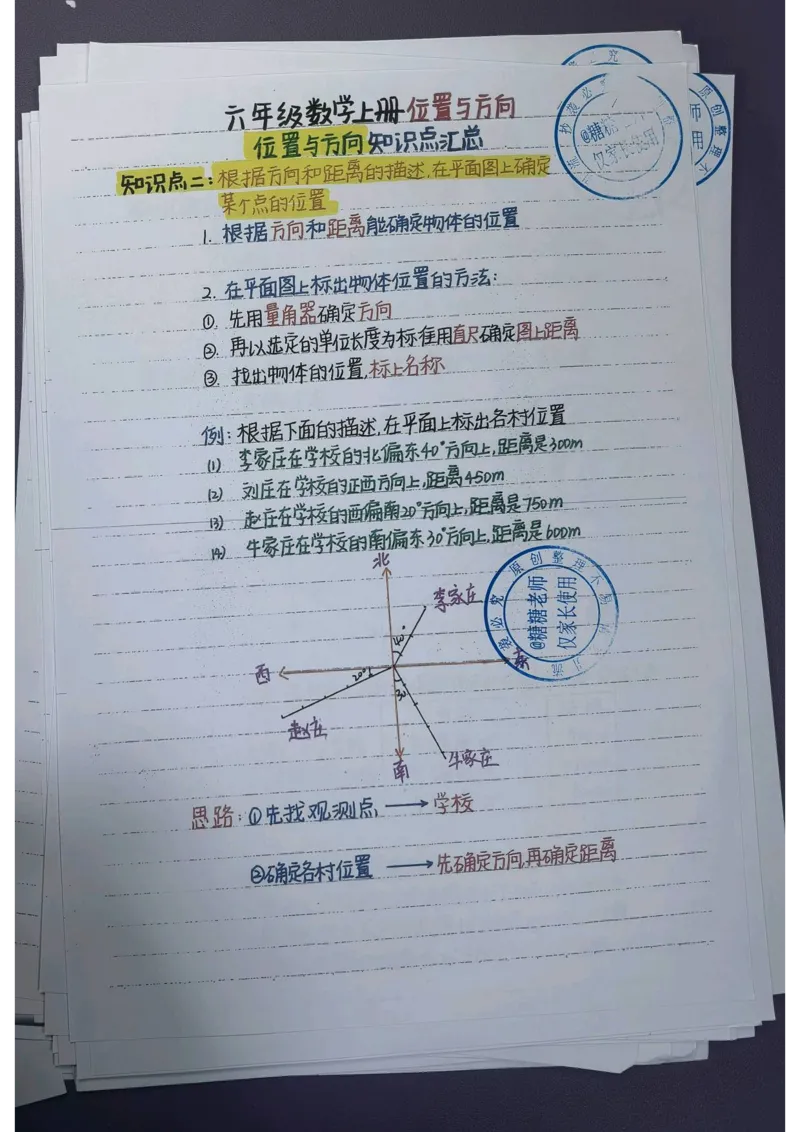 六年级数学上册位置与方向
位置与方向知识点汇总
知识点二:根据方向和距离的描述,在平面图上确定
某个点的位置
1. 根据方向和距离能确定物体的位置
2. 在平面图上标出物体位置的方法:
①. 先用量角器确定方向
②. 再以选定的单位长度为标准用直尺确定图上距离
③. 找出物体的位置,标上名称
例:根据下面的描述,在平面上标出各村位置
(1) 李家庄在学校的北偏东40°方向上,距离是300m
(2) 刘庄在学校的正西方向上,距离450m
(3) 赵庄在学校的西偏南20°方向上,距离是750m
(4) 牛家庄在学校的南偏东30°方向上,距离是600m
北
李家庄
40°
西
东
20°
30°
赵庄
牛家庄
南
思路:①先找观测点→学校
②确定各村位置→先确定方向,再确定距离
原创整理不
@糖糖老师
仅家长使用